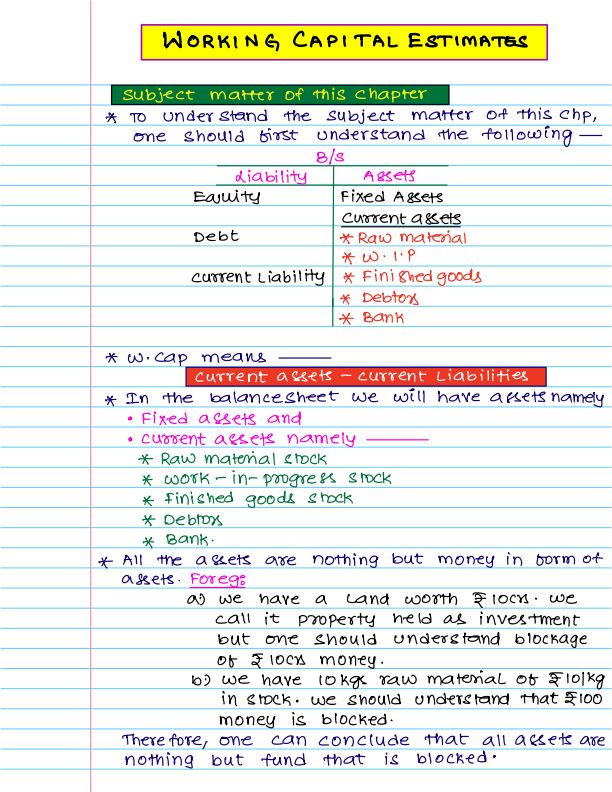 WORKING CAPITAL ESTIMATES
Subject matter of this chapter
* To understand the subject matter of this chp,
one should first understand the following —
B/S
Liability Assets
Equity Fixed Assets
Current assets
Debt * Raw material
* W.I.P
Current Liability * Finished goods
* Debtors
* Bank
* W.Cap means ——
Current assets - Current Liabilities
* In the balancesheet we will have assets namely
• Fixed assets and
• Current assets namely ——
* Raw material stock
* work-in-progress stock
* Finished goods stock
* Debtors
* Bank.
* All the assets are nothing but money in form of
assets. Foreg:
a) we have a Land worth ₹10crs. we
call it property held as investment
but one should understand blockage
of ₹10crs money.
b) we have 10kgs raw material of ₹10/kg
in stock. we should understand that ₹100
money is blocked.
Therefore, one can conclude that all assets are
nothing but fund that is blocked.